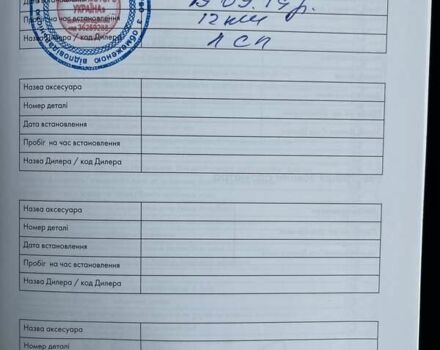 УКРАЇНА»
19.09.19р.
Пробіг на час встановлення 12 км
Назва Дилера / код Дилера ЛСП
Назва аксесуара
Номер деталі
Дата встановлення
Пробіг на час встановлення
Назва Дилера / код Дилера
Назва аксесуара
Номер деталі
Дата встановлення
Пробіг на час встановлення
Назва Дилера / код Дилера
Назва аксесуара
Номер деталі